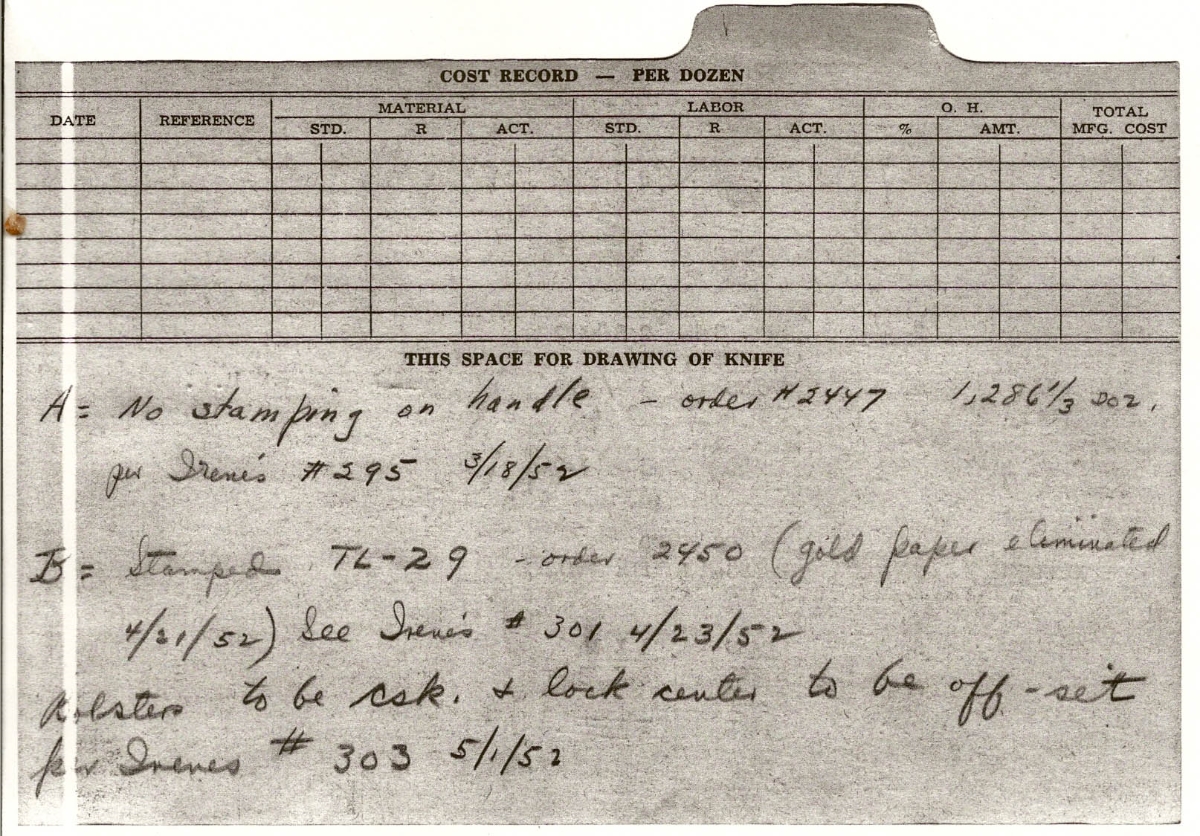 COST RECORD — PER DOZEN
DATE REFERENCE MATERIAL LABOR O. H. TOTAL MFG. COST
STD. R ACT. STD. R ACT. % AMT.
THIS SPACE FOR DRAWING OF KNIFE
A = No stamping on handle - order #2447 1,286 1/3 DOZ.
per Irene's #295 3/18/52
B = Stamped TL-29 - order 2450 (gold paper eliminated
4/21/52) See Irene's # 301 4/23/52
Bolsters to be csk. & lock center to be off-set
per Irenes # 303 5/1/52